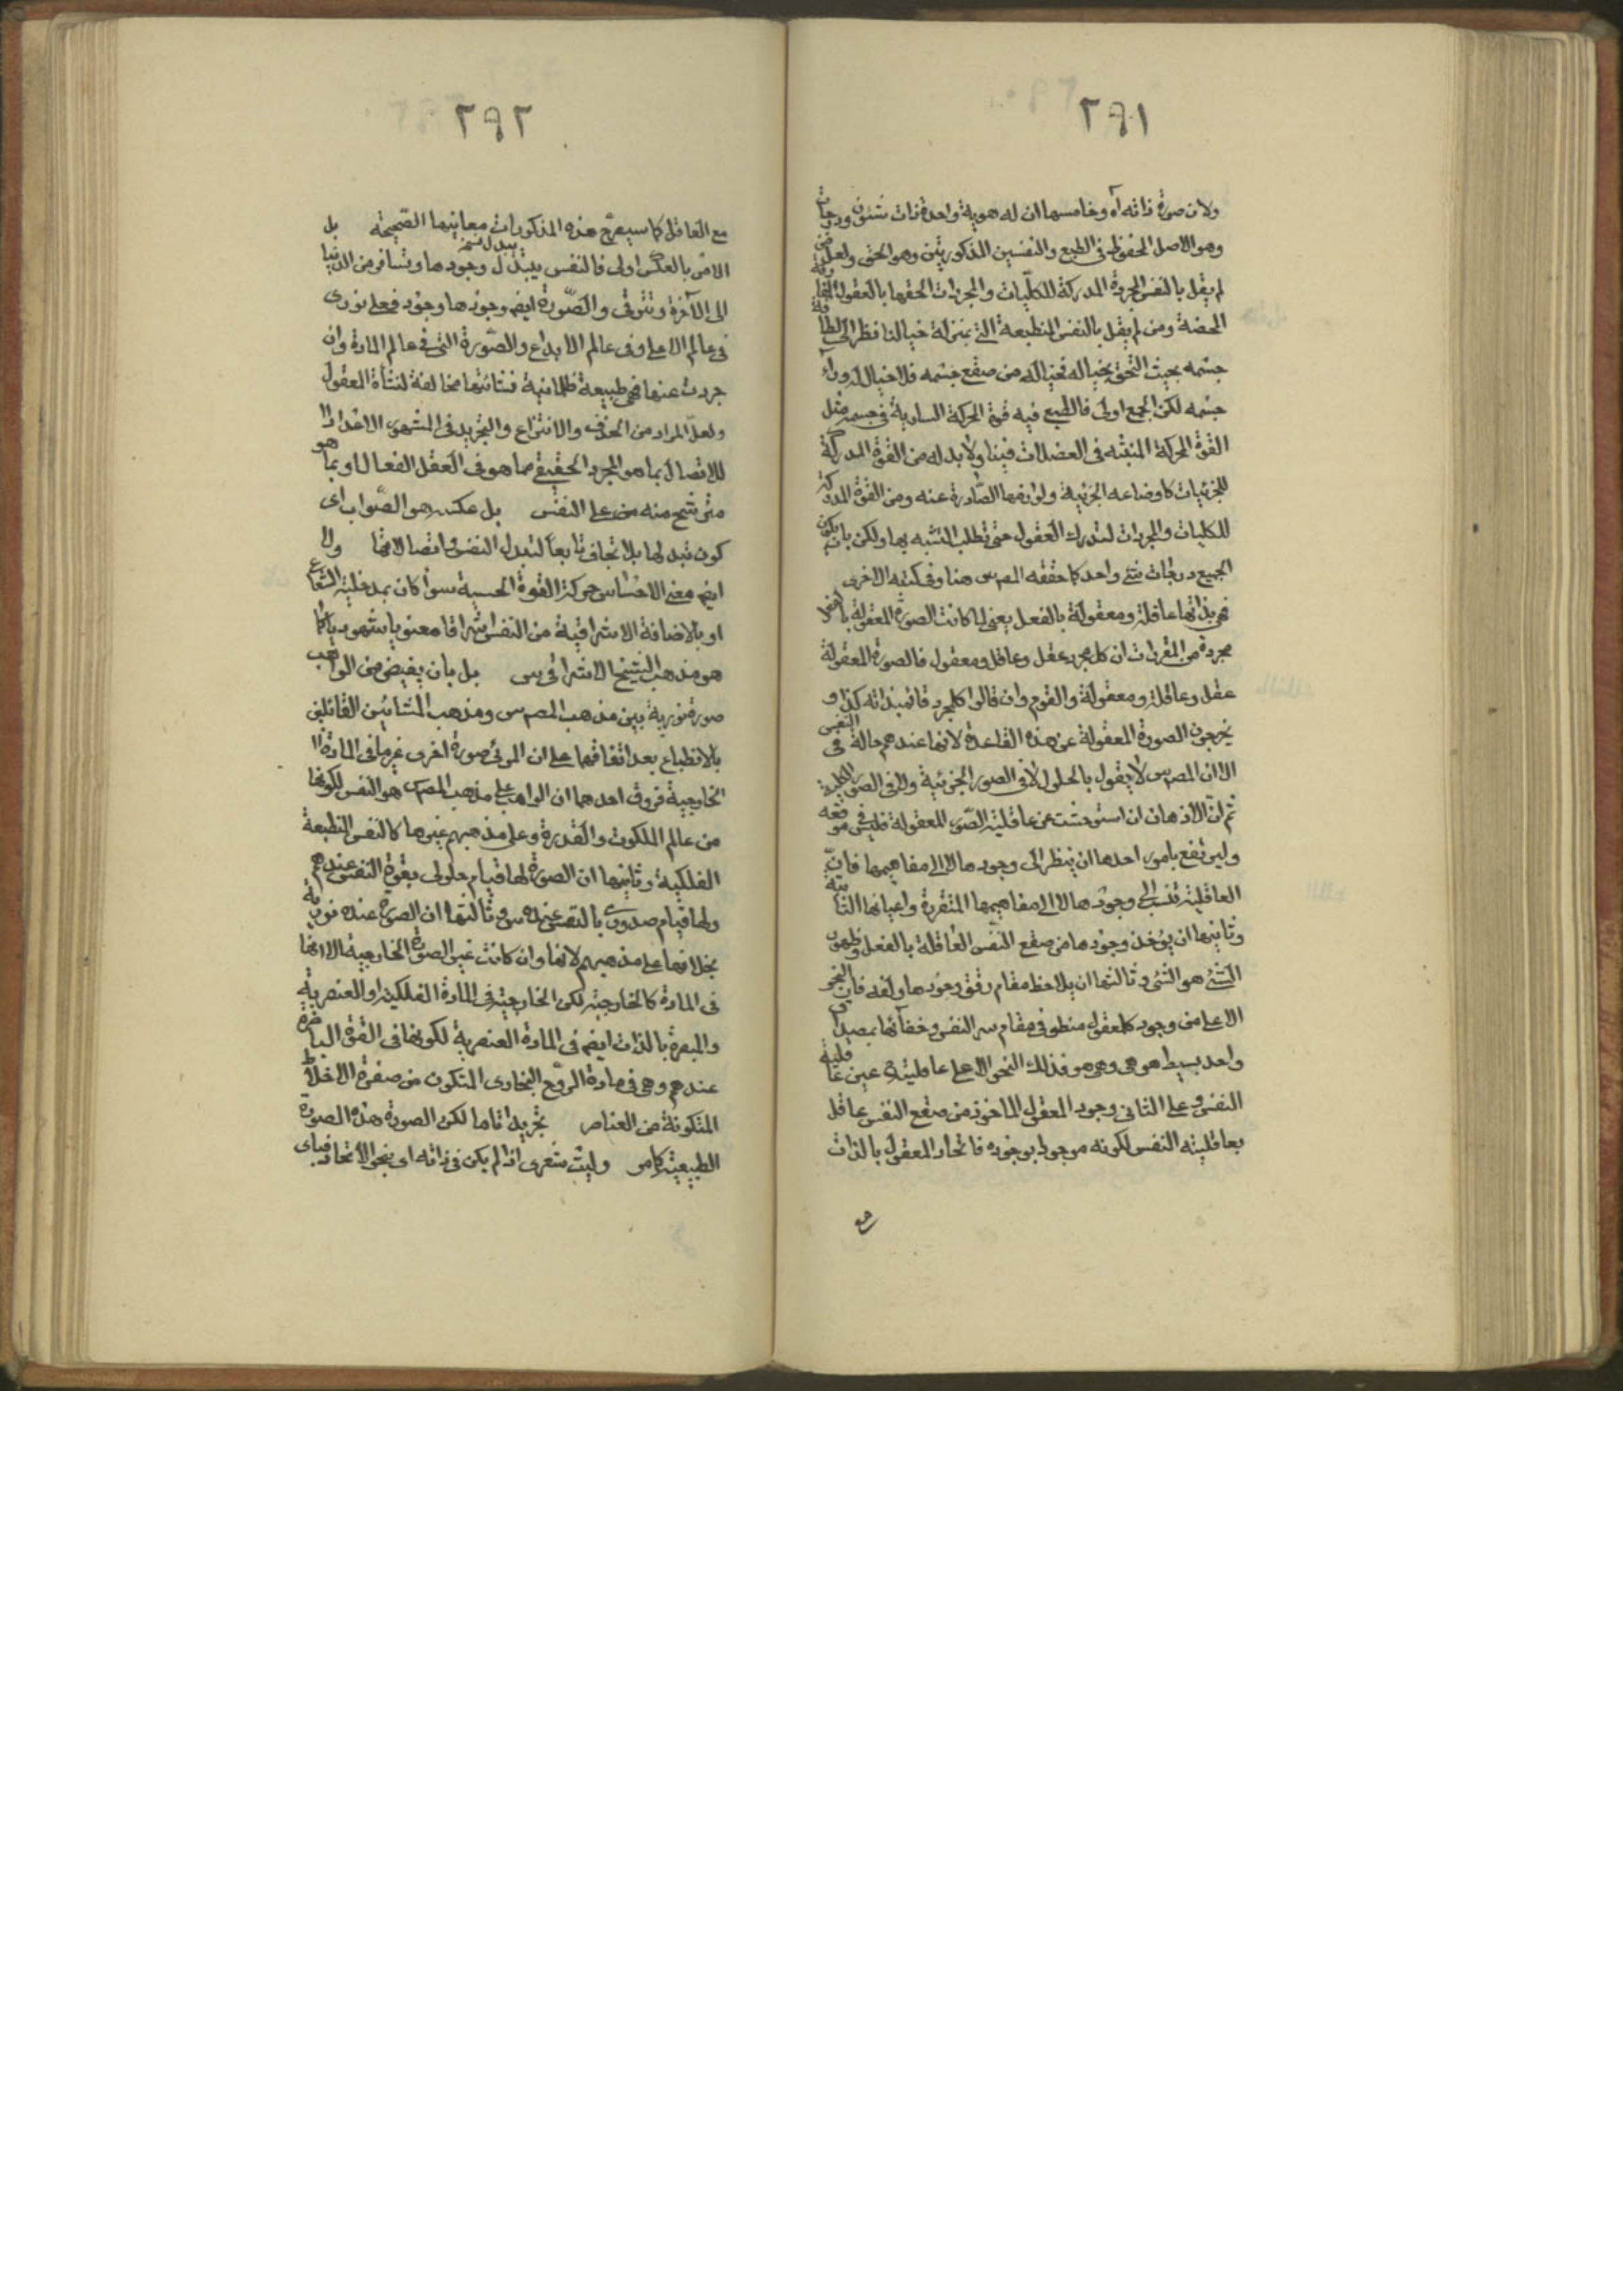 ٢٩١
ولان صورة ذاته اه وخامسها ان له هوية واحدة ذات شئون ودرجات
وهو الاصل المحفوظ فى الطبع والنفسين المذكورتين وهو الحق ولعل من
لم يقل بالنفس المجردة المدركة للكلّيات والمجردات الحقها بالعقول
المحضة ومن لم يقل بالنفس المنطبعة التى بمنزلة خيالنا نظر الى
جسمه بحيث التحق بخياله فخياله من صقع جسمه فلا خيال له وراء
جسمه لكن الجمع اولى فالطبع فيه قوة الحركة السارية فى جسمه مثل
القوة المحركة المنبثه فى العضلات فينا ولا بد له من القوة المدركة
للجزئيات كاوضاعه الجزئية ولوازمها الصّادرة عنه ومن القوة المدركة
للكليات والمجردات لتدرك العقول حتى تطلب التشبه بها ولكن بان يكون
الجميع درجات شئ واحد كما حققه المص س هنا وفى كتبه الاخرى
فهى بذاتها عاقلة ومعقولة بالفعل يعنى لما كانت الصورة المعقولة
مجردة من المقررات ان كل مجرد عقل وعاقل ومعقول فالصورة المعقولة
عقل وعاقلة ومعقولة والقوم وان قالوا كل مجرد قائم بذاته كذا و
يخرجون الصورة المعقولة عن هذه القاعدة لانها عندهم حالة فى النفس
الا ان المص س لا يقول بالحلول لا فى الصور الجزئية ولا فى الصور الكلية
ثم انّ الاذهان ان استوحشت عن عاقلية الصّور المعقولة فليس فى موقعه
وليرتفع بامور احدها ان ينظر الى وجودها لا الى مفاهيمها فانّ
العاقلية تنسب الى وجودها لا الى مفاهيمها المتقررة واعيانها الثابتة
وثانيها ان يؤخذ وجودها من صقع النفس العاقلة بالفعل وظهور
الشئ هو الشئ وثالثها ان يلاحظ مقام رتق وجودها ولفه فان النحو
الاعلى من وجود كل معقول منطو فى مقام سر النفس وخفائها بمصداق
واحد بسيط هو هى وهى هو فذلك النحو الاعلى عاقليته عين عاقلية
النفس وعلى الثانى وجود المعقول الماخوذ من صقع النفس عاقل
بعاقلية النفس لكونه موجودا بوجوده فاتحاد المعقول بالذات
مع
٢٩٢
مع العاقل كما سيصرّح هذه المذكورات معانيها الصّحيحة بل
الامر بالعكس اولى فالنفس يتبدّل وجودها وتسافر من الدنيا
الى الآخرة وتترقى والصّورة ايضم وجودها وجود فعلى نورى
فى عالم الاعلى وفى عالم الابداع والصّورة التى فى عالم المادة وان
جردت عنها فهى طبيعة ظلمانية فنشأتها مخالفة لنشأة العقول
ولعلّ المراد من الحذف والانتزاع والتجريد فى المشهور الاعداد
للاتصال بما هو المجرد الحقيقى مما هو فى العقل الفعال او بما هو
مترشح منه على النفس بل عكسه هو الصّواب اى
كون تبدلها بلا تجاف تابعاً لتبدل النفس واتصالاتها ولا
ايضم معنى الاحساس حركة القوة الحسية سواء كان بمدخلية الشعاع
او بالاضافة الاشراقية من النفس اشراقا معنويا شهوديا كما
هو مذهب الشيخ الاشراقى س بل بان يفيض من الواهب
صورة نورية بين مذهب المص س ومذهب المشائين القائلين
بالانطباع بعد اتفاقهما على ان المرئى صورة اخرى غير ما فى المادة
الخارجية فروق احدهما ان الواهب على مذهب المص س هو النفس لكونها
من عالم الملكوت والقدرة وعلى مذهبهم غيرها كالنفس المنطبعة
الفلكية وثانيها ان الصورة لها قيام حلولى بقوة النفس عندهم
ولها قيام صدورى بالنفس عنده س وثالثها ان الصورة عنده نورية
بخلافها على مذهبهم لانها وان كانت غير الصورة الخارجية الا انها
فى المادة كالخارجية لكن الخارجية فى المادة الفلكية او العنصرية
والمبصرة بالذات ايضم فى المادة العنصرية لكونها فى القوة الباصرة
عندهم وهى فى مادة الروح البخارى المتكون من صفوة الاخلاط
المتكونة من العناصر تجريدا تاما لكن الصورة هذه الصورة
الطبيعية كما مر وليت شعرى اذا لم يكن فى ذاته اى بنحو الاتحاد فباى